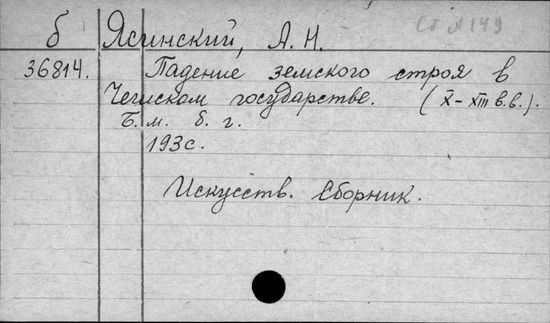 б Ясинский, А. Н.
36814. Падение земского строя в
Чешском государстве. (X-XIII в.в.).
Б. м. б. г.
193 с.
Искусств. Сборник.